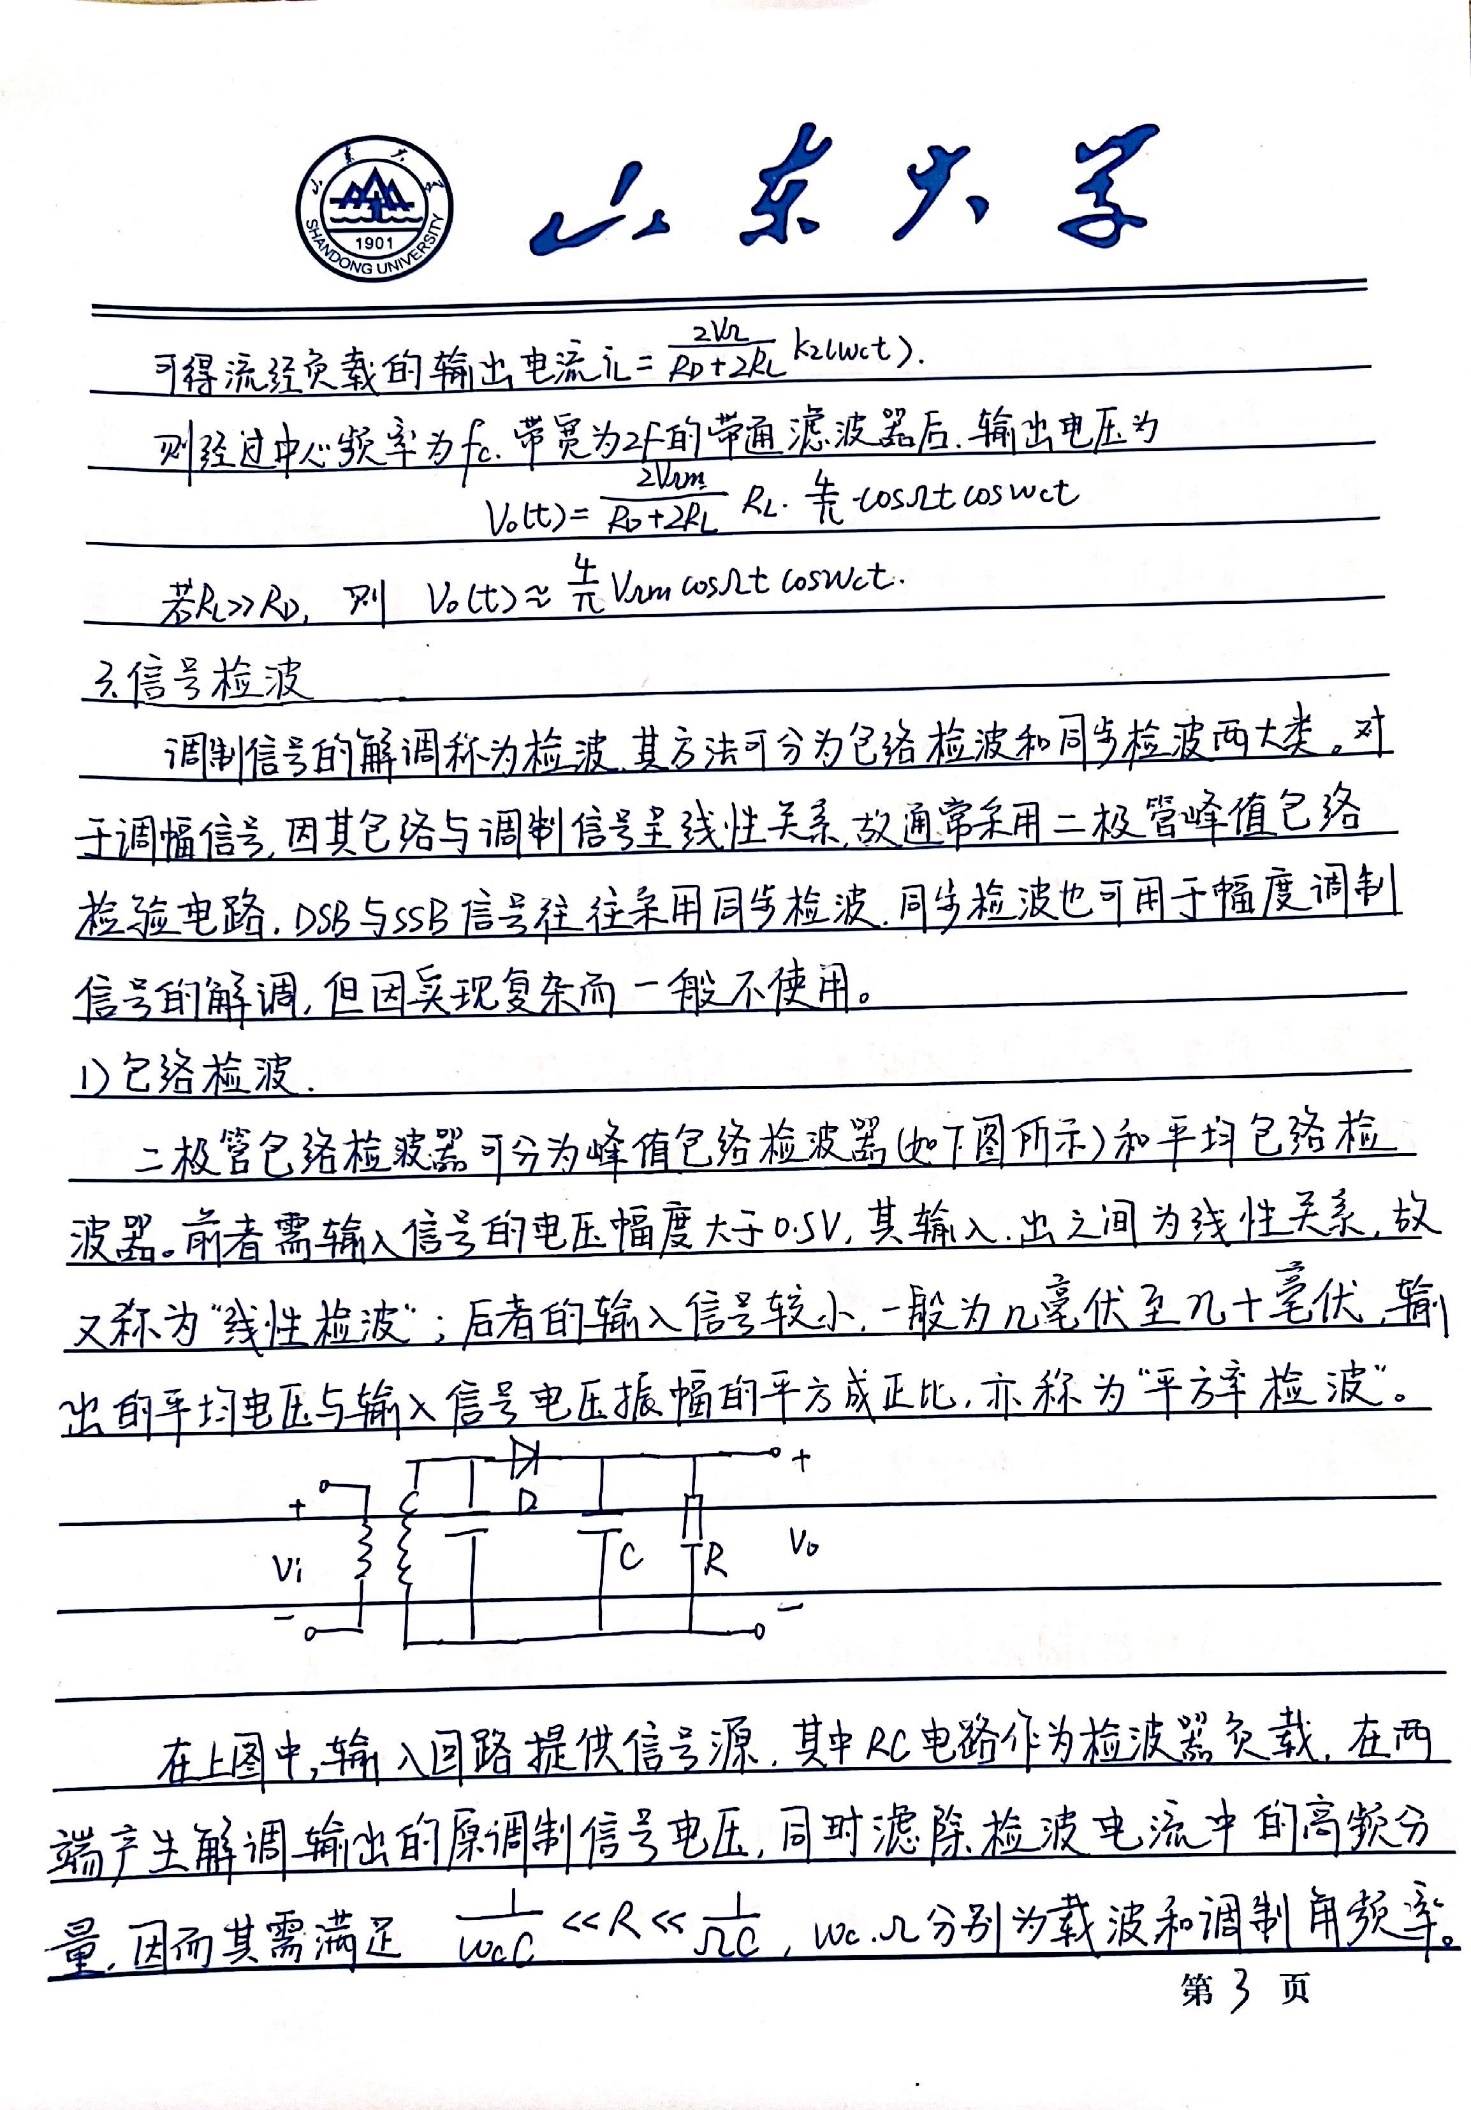 山东大学
山东大学
1901
SHANDONG UNIVERSITY
可得流经负载的输出电流 iL = 2VΩ/(RD+2RL) k2(ωct).
则经过中心频率为fc.带宽为2F的带通滤波器后.输出电压为
Vo(t) = 2VΩm/(RD+2RL) RL · 4/π · cosΩt cosωct
若RL>>RD, 则 Vo(t) ≈ 4/π VΩm cosΩt cosωct.
3.信号检波
调制信号的解调称为检波.其方法可分为包络检波和同步检波两大类。对
于调幅信号,因其包络与调制信号呈线性关系,故通常采用二极管峰值包络
检验电路.DSB与SSB信号往往采用同步检波.同步检波也可用于幅度调制
信号的解调,但因实现复杂而一般不使用。
1)包络检波.
二极管包络检波器可分为峰值包络检波器(如下图所示)和平均包络检
波器。前者需输入信号的电压幅度大于0.5V,其输入.出之间为线性关系,故
又称为“线性检波”;后者的输入信号较小,一般为几毫伏至几十毫伏,输
出的平均电压与输入信号电压振幅的平方成正比,亦称为“平方率检波”。
+ Vi -
D
C
R
+ Vo -
在上图中,输入回路提供信号源.其中RC电路作为检波器负载,在两
端产生解调输出的原调制信号电压,同时滤除检波电流中的高频分
量,因而其需满足 1/ωcC << R << 1/ΩC, ωc.Ω分别为载波和调制角频率。
第3页